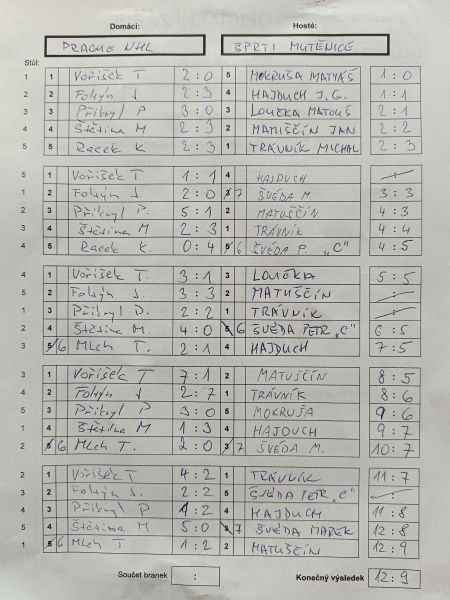 Domácí: Hosté:
PRAGUE NHL ŠPRTI MUTĚNICE
Stůl:
1 1 Voříšek T 2:0 5 MOKRUŠA MATYÁŠ 1:0
2 2 Foltýn J. 2:3 4 HAJDUCH J.G. 1:1
3 3 Přikryl P. 3:0 3 LOUČKA MATOUŠ 2:1
4 4 Štětina M 2:3 2 MATUŠČÍN JAN 2:2
5 5 Racek K. 2:3 1 TRÁVNÍK MICHAL 2:3
5 1 Voříšek T 1:1 4 HAJDUCH :
1 2 Foltýn J. 2:0 3 7 ŠVÉDA M. 3:3
2 3 Přikryl P. 5:1 2 MATUŠČÍN 4:3
3 4 Štětina M. 2:3 1 TRÁVNÍK 4:4
4 5 Racek K. 0:4 5 6 ŠVÉDA P. „C" 4:5
4 1 Voříšek T. 3:1 3 LOUČKA 5:5
5 2 Foltýn J. 3:3 2 MATUŠČÍN :
1 3 Přikryl P. 2:2 1 TRÁVNÍK :
2 4 Štětina M. 4:0 5 6 ŠVÉDA PETR „C" 6:5
3 5 6 Mlch T. 2:1 4 HAJDUCH 7:5
3 1 Voříšek T 7:1 2 MATUŠČÍN 8:5
4 2 Foltýn J 2:7 1 TRÁVNÍK 8:6
5 3 Přikryl P 3:0 5 MOKRUŠA 9:6
1 4 Štětina M 1:3 4 HAJDUCH 9:7
2 5 6 Mlch T. 2:0 3 7 ŠVÉDA M. 10:7
2 1 Voříšek T 4:2 1 TRÁVNÍK 11:7
3 2 Foltýn J. 2:2 5 ŠVÉDA PETR „C" :
4 3 Přikryl P 1:2 4 HAJDUCH 11:8
5 4 Štětina M 5:0 3 7 ŠVÉDA MAREK 12:8
1 5 6 Mlch T 1:2 2 MATUŠČÍN 12:9
Součet branek : Konečný výsledek 12:9